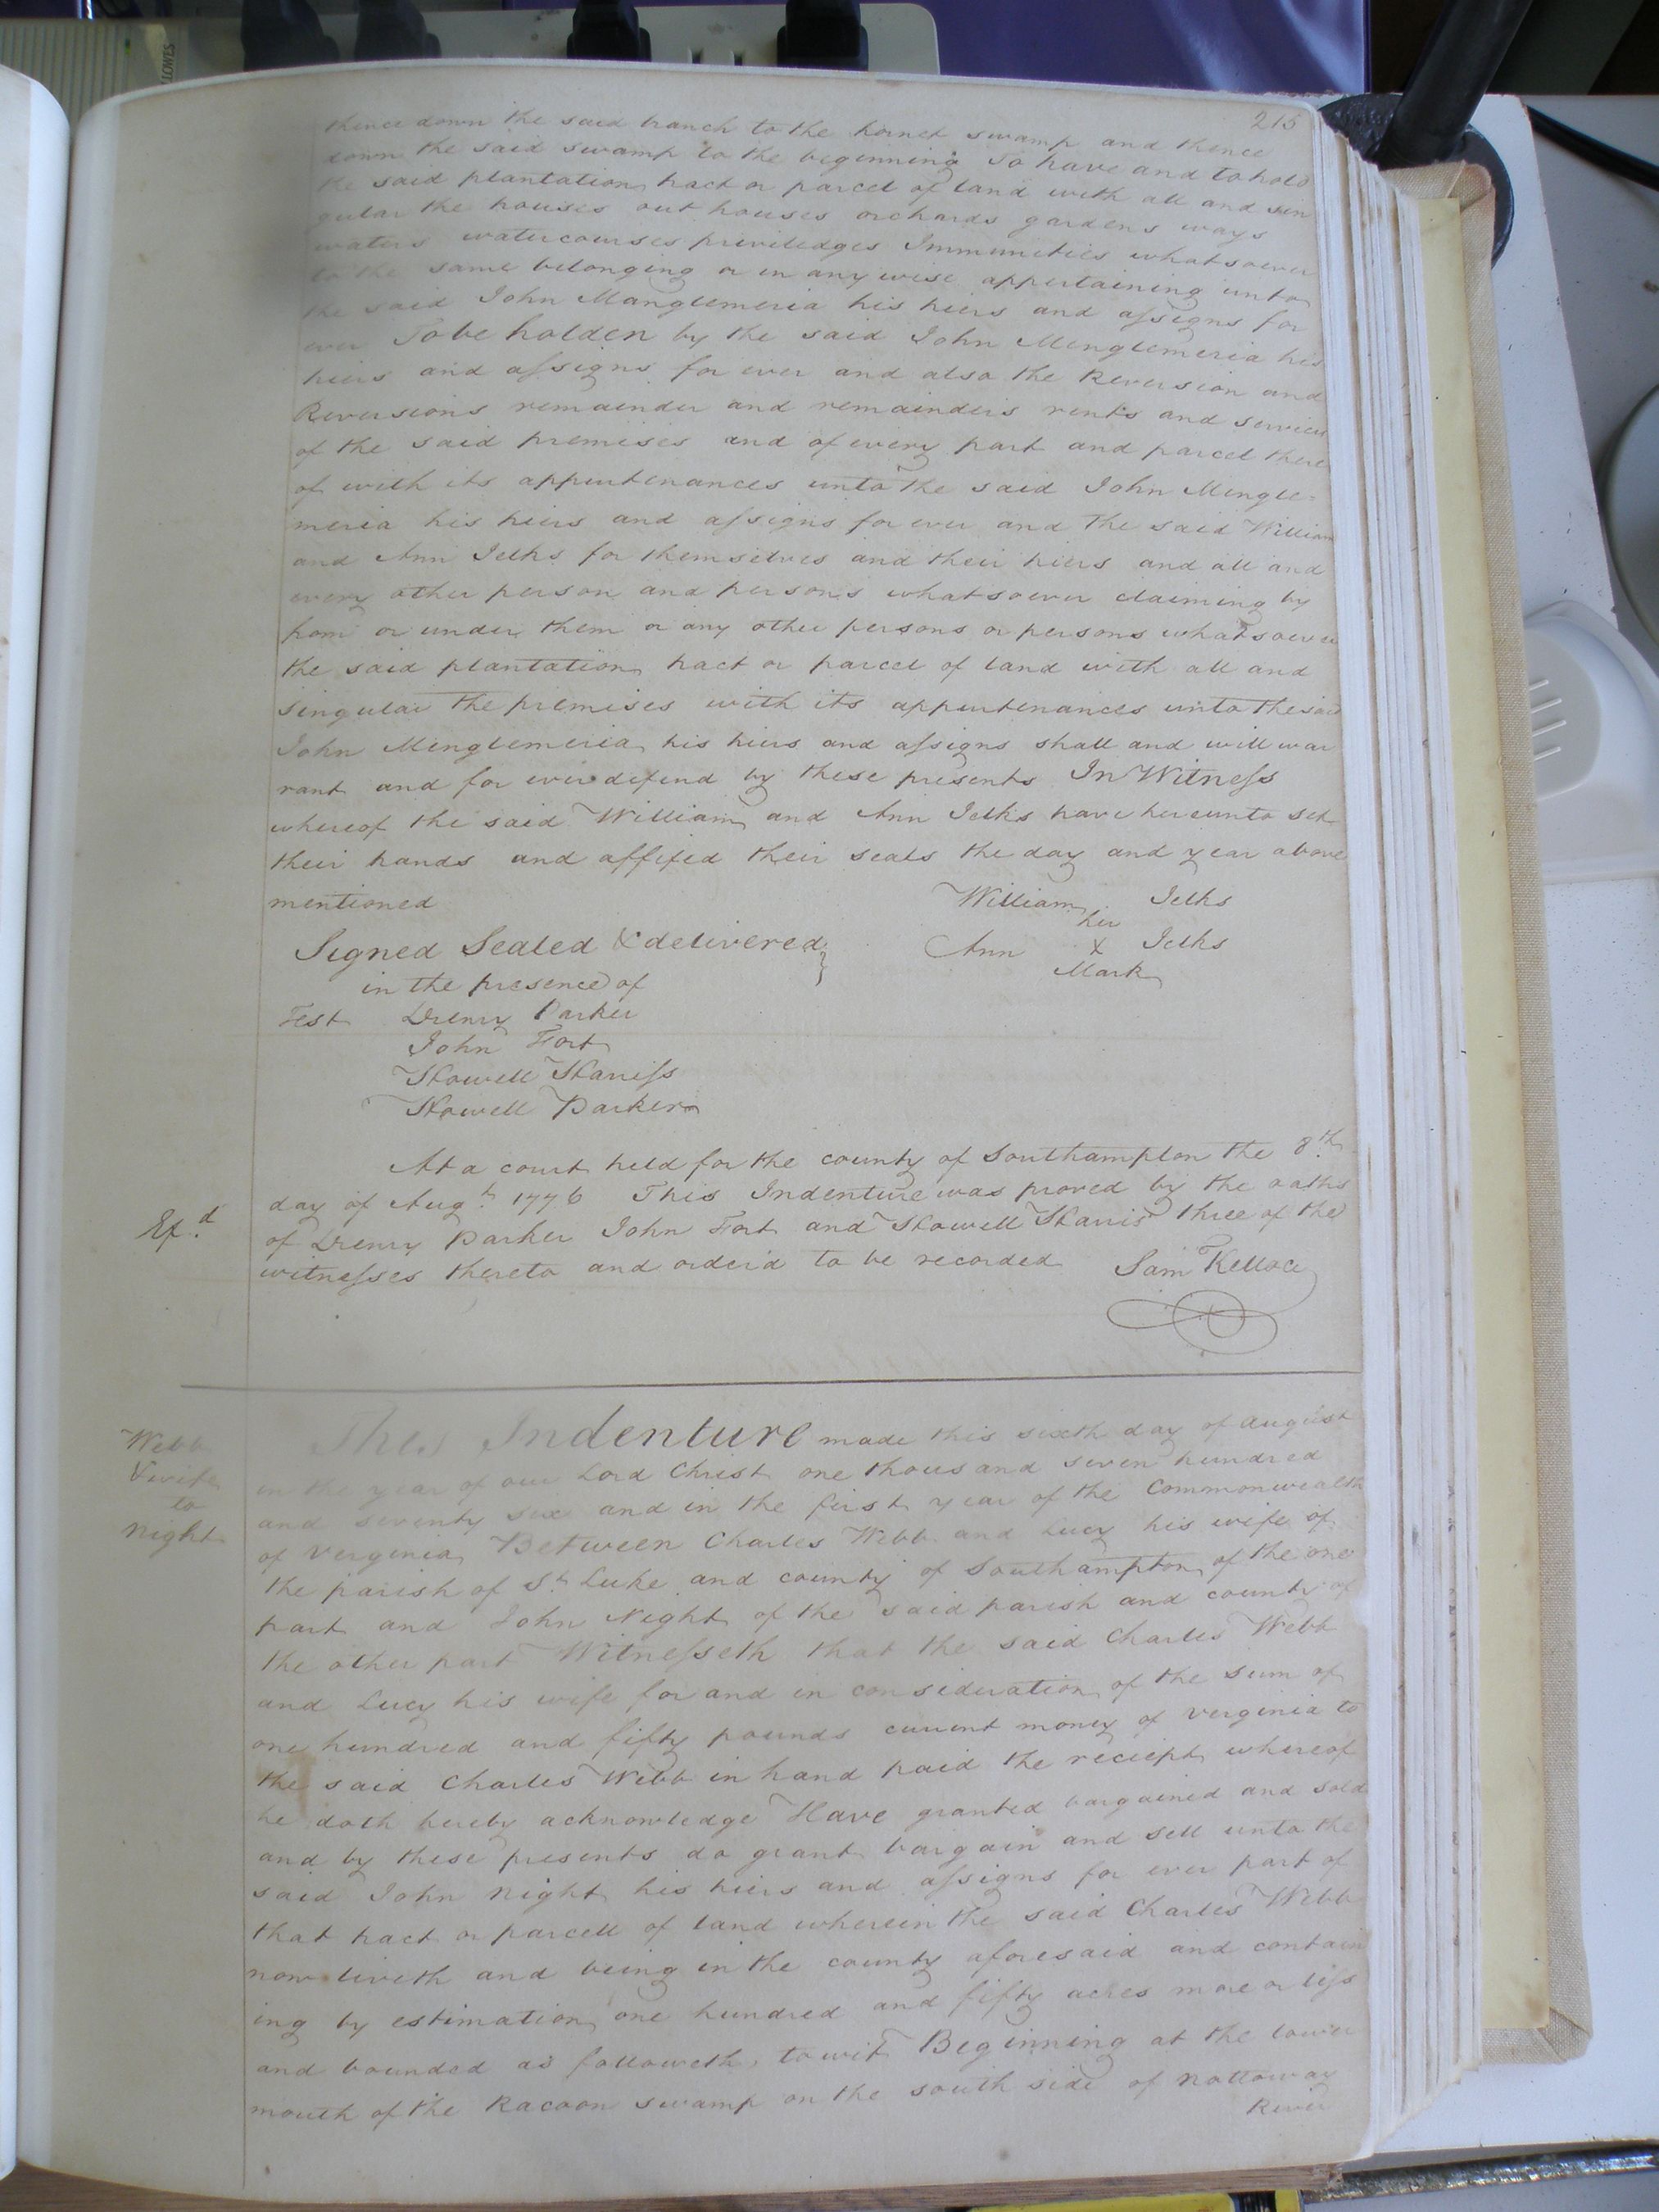 215
thence down the said branch to the horned swamp and thence
down the said swamp to the beginning To have and to hold
the said plantation tract or parcel of land with all and sin
gular the houses out houses orchards gardens ways
waters watercourses priviledges Immuneties whatsoever
to the same belonging or in any wise appertaining unto
the said John Manglemeria his hiers and assigns for
ever To be holden by the said John Menglemeria his
hiers and assigns for ever and also the Reversion and
Reversions remainder and remainders rents and services
of the said premises and of every part and parcel there
of with its appurtenances unto the said John Mingle=
meria his hiers and assigns for ever and the said William
and Ann Jelks for themselves and their hiers and all and
every other person and persons whatsoever claiming by
from or under them or any other persons or persons whatsoever
the said plantation tract or parcel of land with all and
singular the premises with its appurtenances unto the said
John Menglemeria his hiers and assigns shall and will war
rant and for ever defend by these presents In Witness
whereof the said William and Ann Jelks have hereunto set
their hands and affixed their seals the day and year above
mentioned
William Jelks
her
Ann X Jelks
Mark
Signed Sealed & delivered
in the presence of
Test Drenry Parker
John Fort
Howell Harriss
Howell Parker
At a court held for the county of Southampton the 8th
day of Augt 1776 This Indenture was proved by the oaths
of Drenry Parker John Fort and Howell Harris three of the
witnesses thereto and order'd to be recorded Sam Kelloce
Ex.d
Webb
& wife
to
Night
This Indenture made this sixth day of august
in the year of our Lord Christ one thousand seven hundred
and seventy six and in the first year of the Commonwealth
of Verginia Between Charles Webb and Lucy his wife of
the parish of St Luke and county of Southampton of the one
part and John Night of the said parish and county of
the other part Witnesseth that the said Charles Webb
and Lucy his wife for and in consideration of the sum of
one hundred and fifty pounds current money of Verginia to
the said Charles Webb in hand paid the reciept whereof
he doth hereby acknowledge Have granted bargained and sold
and by these presents do grant bargain and sell unto the
said John Night his hiers and assigns for ever part of
that tract or parcell of land wherein the said Charles Webb
now liveth and being in the county aforesaid and contain
ing by estimation one hundred and fifty acres more or less
and bounded as followeth, to wit Beginning at the lower
mouth of the Racoon swamp on the south side of Nottoway
River